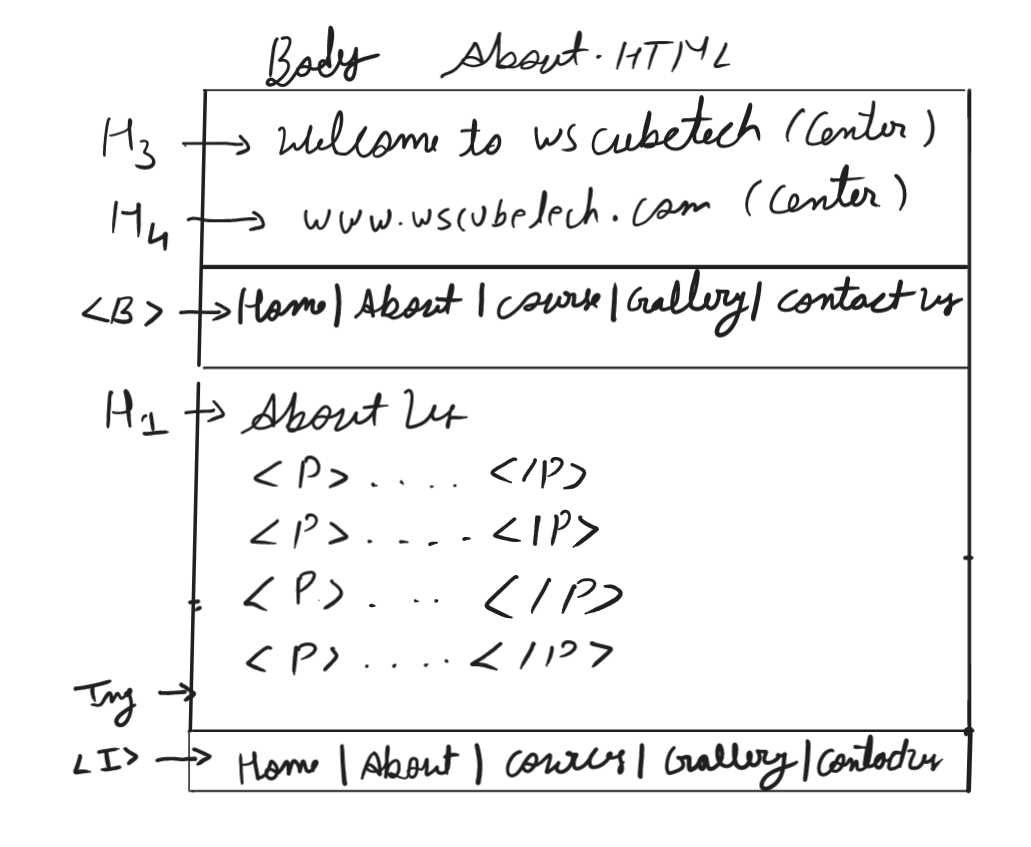 Body About.HTML
H3 → Welcome to WS cubetech (Center)
H4 → www.wscubetech.com (Center)
<B> → Home | About | course | Gallery | contact us
H1 → About Us
<P> . . . . </P>
<P> . . . . </P>
<P> . . . . </P>
<P> . . . . </P>
Img →
<I> → Home | About | Cources | Gallery | Contact us